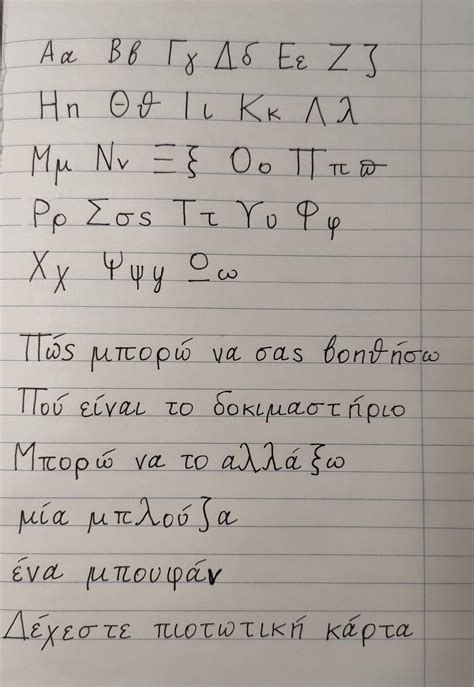 Αα Ββ Γγ Δδ Εε Ζζ
Ηη Θϑ Ιι Κκ Λλ
Μμ Νν Ξξ Οο Ππϖ
Ρρ Σσς Ττ Υυ Φφ
Χχ Ψψψ Ωω
Πώς μπορώ να σας βοηθήσω
Πού είναι το δοκιμαστήριο
Μπορώ να το αλλάξω
μία μπλούζα
ένα μπουφάν
Δέχεστε πιστωτική κάρτα